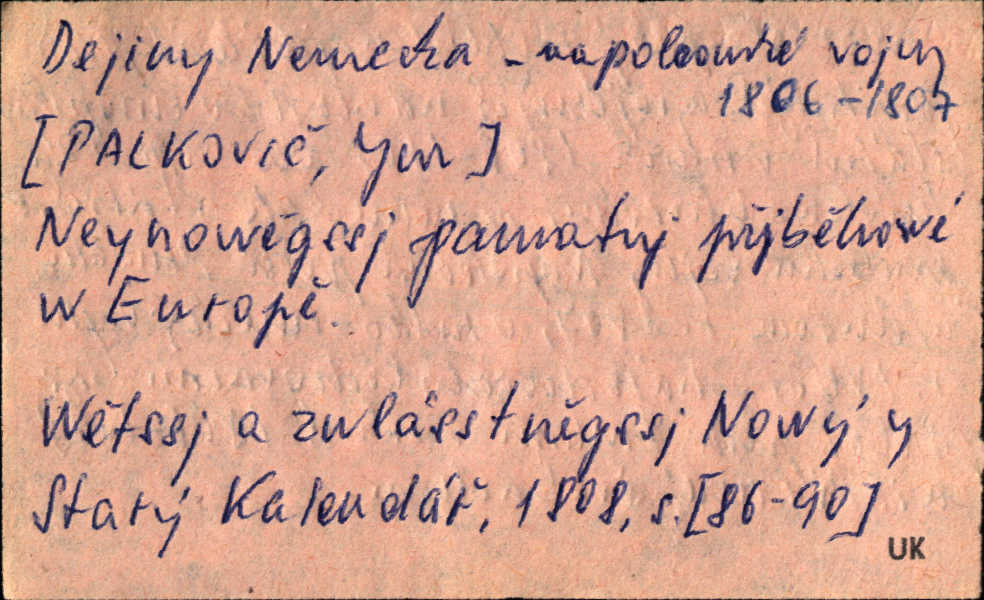 Dejiny Nemecka - napoleonské vojny
1806-1807
[PALKOVIČ, Jur]
Neynowěgssj pamatnj přjběhowé
w Europě.
Wětssj a zwlásstněgssj Nowý y
Starý Kalendář, 1808, s.[86-90]
UK